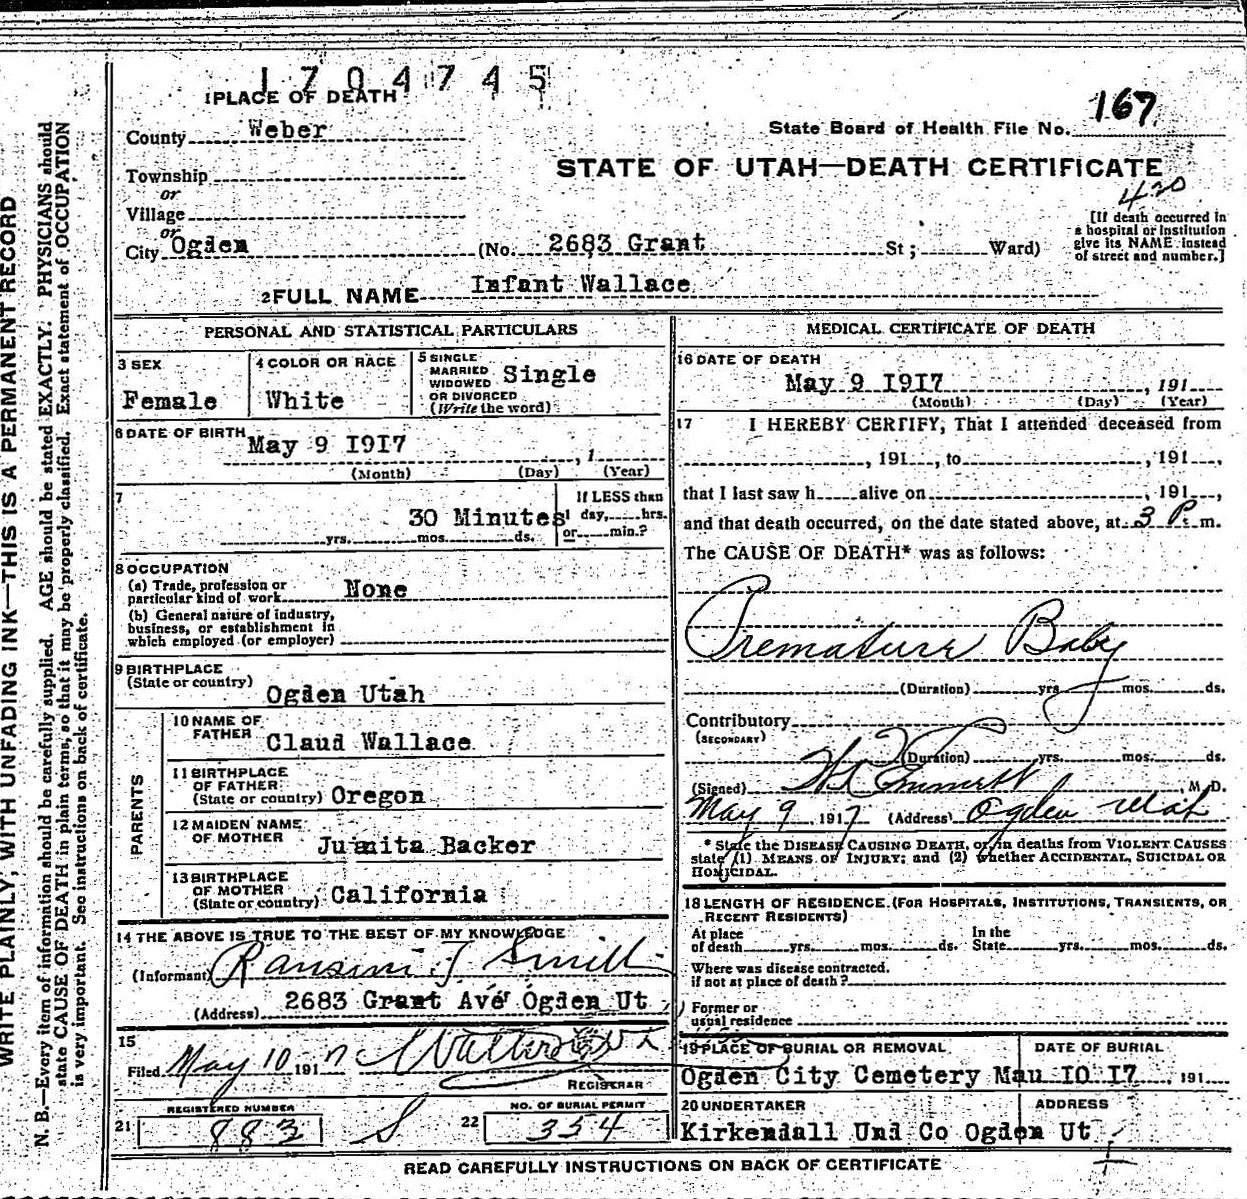 1704745
1 PLACE OF DEATH
167
County Weber
State Board of Health File No.
Township
STATE OF UTAH—DEATH CERTIFICATE
or
420
Village
or
City Ogden (No. 2683 Grant St; Ward)
[If death occurred in
a hospital or institution
give its NAME instead
of street and number.]
2 FULL NAME Infant Wallace
PERSONAL AND STATISTICAL PARTICULARS
3 SEX
Female
4 COLOR OR RACE
White
5 SINGLE
MARRIED
WIDOWED
OR DIVORCED
(Write the word)
Single
6 DATE OF BIRTH May 9 1917
, 1
(Month) (Day) (Year)
7
30 Minutes
yrs. mos. ds.
If LESS than
1 day, hrs.
or min.?
8 OCCUPATION
(a) Trade, profession or
particular kind of work None
(b) General nature of industry,
business, or establishment in
which employed (or employer)
9 BIRTHPLACE
(State or country)
Ogden Utah
PARENTS
10 NAME OF
FATHER Claud Wallace
11 BIRTHPLACE
OF FATHER
(State or country) Oregon
12 MAIDEN NAME
OF MOTHER Juanita Backer
13 BIRTHPLACE
OF MOTHER
(State or country) California
14 THE ABOVE IS TRUE TO THE BEST OF MY KNOWLEDGE
(Informant)
(Address) 2683 Grant Ave Ogden Ut
15
Filed May 10 1917
REGISTRAR
REGISTERED NUMBER
21 883
NO. OF BURIAL PERMIT
22 354
MEDICAL CERTIFICATE OF DEATH
16 DATE OF DEATH
May 9 1917 , 191
(Month) (Day) (Year)
17 I HEREBY CERTIFY, That I attended deceased from
, 191 , to , 191 ,
that I last saw h alive on , 191 ,
and that death occurred, on the date stated above, at 3 P. m.
The CAUSE OF DEATH* was as follows:
Premature Baby
(Duration) yrs. mos. ds.
Contributory
(SECONDARY)
(Duration) yrs. mos. ds.
(Signed) M.D.
May 9, 1917 (Address) Ogden Utah
* State the DISEASE CAUSING DEATH, or, in deaths from VIOLENT CAUSES
state (1) MEANS OF INJURY; and (2) whether ACCIDENTAL, SUICIDAL OR
HOMICIDAL.
18 LENGTH OF RESIDENCE. (FOR HOSPITALS, INSTITUTIONS, TRANSIENTS, OR
RECENT RESIDENTS)
At place
of death yrs. mos. ds.
In the
State yrs. mos. ds.
Where was disease contracted.
if not at place of death?
Former or
usual residence
19 PLACE OF BURIAL OR REMOVAL
Ogden City Cemetery
DATE OF BURIAL
Mau 10 17 , 191
20 UNDERTAKER
ADDRESS
Kirkendall Und Co Ogden Ut
READ CAREFULLY INSTRUCTIONS ON BACK OF CERTIFICATE
WRITE PLAINLY, WITH UNFADING INK—THIS IS A PERMANENT RECORD
N. B.—Every item of information should be carefully supplied. AGE should be stated EXACTLY. PHYSICIANS should
state CAUSE OF DEATH in plain terms, so that it may be properly classified. Exact statement of OCCUPATION
is very important. See instructions on back of certificate.